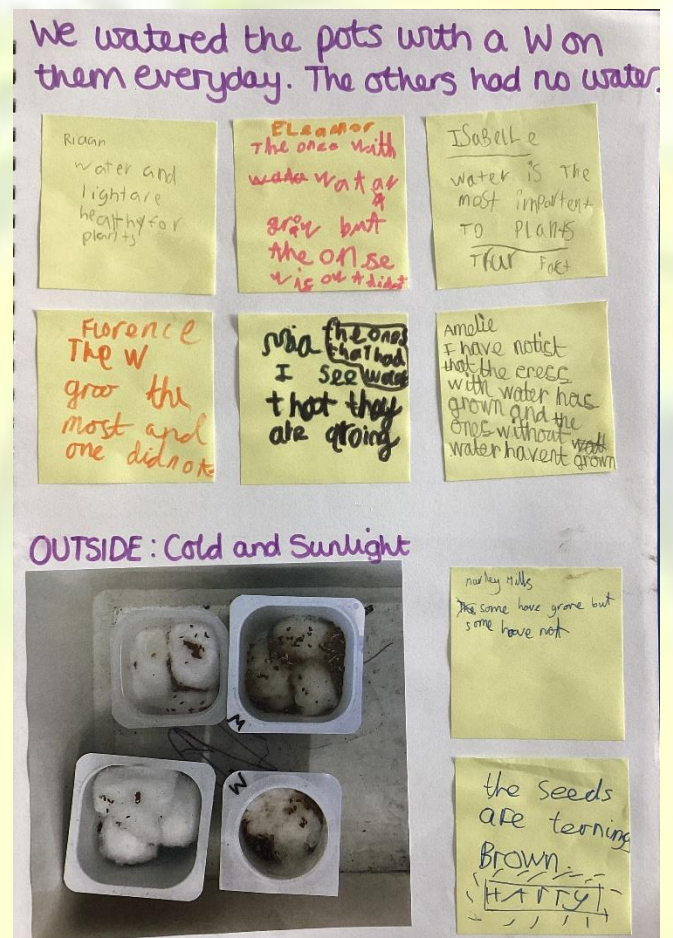 We watered the pots with a W on
them everyday. The others had no water.
Riaan
water and
light are
healthy for
plants
ELeanor
The ones with
wata watar
grow but
the onse
wisout didnt
ISaBeLLe
water is the
most importent
TO PLantS
TRUR Fact
Florence
The W
grow the
most and
one didnot
Mia the ones
that had
I see water
thot they
are groing
Amelie
I have notist
that the cress
with water has
grown and the
ones without watt
water havent grown
OUTSIDE: Cold and Sunlight
marley Mills
The some have grone but
some have not
W
W
the seeds
are terning
Brown.
HARRY